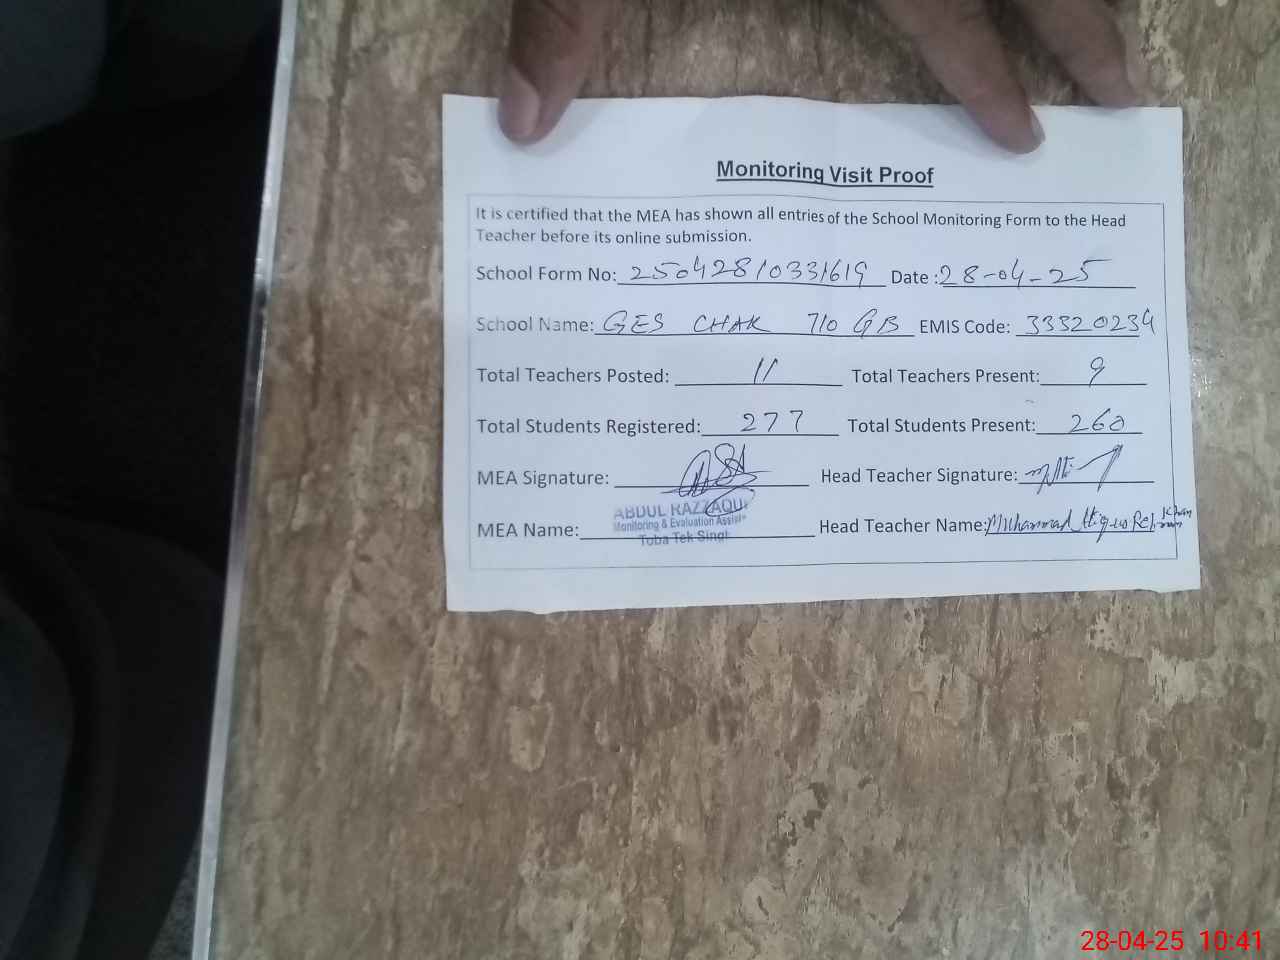 Monitoring Visit Proof
It is certified that the MEA has shown all entries of the School Monitoring Form to the Head
Teacher before its online submission.
School Form No: 25042810331619 Date : 28-04-25
School Name: GES CHAK 710 GB EMIS Code: 33320234
Total Teachers Posted: 11 Total Teachers Present: 9
Total Students Registered: 277 Total Students Present: 260
MEA Signature: Head Teacher Signature:
MEA Name: ABDUL RAZZAQUE
Monitoring & Evaluation Assist
Toba Tek Singh
Head Teacher Name: Muhammad Atiq-ur-Rehman Khan
28-04-25 10:41